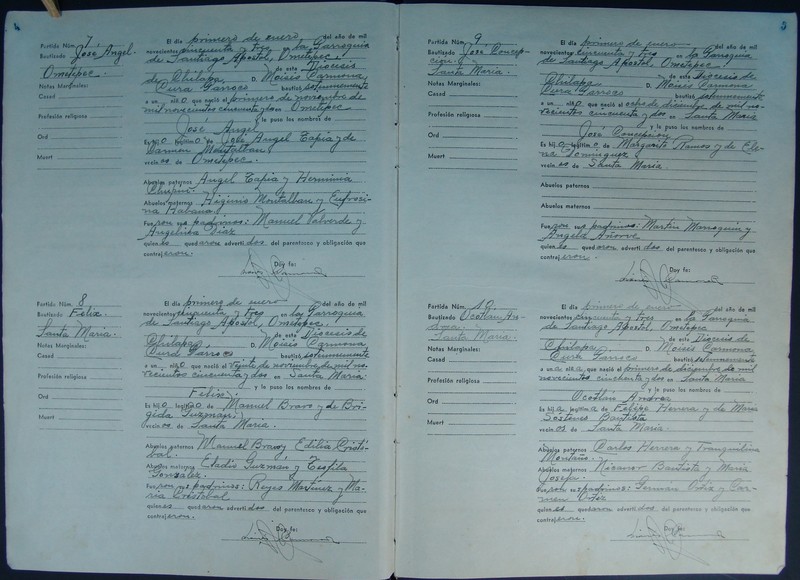 4
Partida Núm. 7
Bautizado José Angel.
Ometepec.
Notas Marginales:
Casad
Profesión religiosa
Ord
Muert
El día primero de enero del año de mil
novecientos cincuenta y tres en la Parroquia
de Santiago Apóstol, Ometepec,
de esta Diócesis
de Chilapa D. Moisés Carmona,
Cura Párroco bautisó solemnemente
a un niño que nació el primero de noviembre de
mil novecientos cincuenta y dos en Ometepec
y le puso los nombres de
José Angel
Es hijo legítimo de José Angel Tapia y de
Carmen Montalban
vecinos de Ometepec.
Abuelos paternos Angel Tapia y Herminia
Abuelos maternos Higinio Montalban y Eufrosina
Habana
Fueron sus padrinos: Manuel Valverde y
Angelina Díaz
quienes quedaron advertidos del parentesco y obligación que
contrajeron.
Doy fe:
Partida Núm. 8
Bautizado Felix.
Santa María.
Notas Marginales:
Casad
Profesión religiosa
Ord
Muert
El día primero de enero del año de mil
novecientos cincuenta y tres en la Parroquia
de Santiago Apóstol, Ometepec.
de esta Diócesis de
Chilapa, D. Moisés Carmona,
Cura Párroco bautisó solemnemente
a un niño que nació el veinte de noviembre de mil no-
vecientos cincuenta y dos en Santa María.
y le puso los nombres de
Felix.
Es hijo legítimo de Manuel Bravo y de Bri-
gida Guzman
vecinos de Santa María.
Abuelos paternos Manuel Bravo y Edilia Cristó-
bal.
Abuelos maternos Eladio Guzmán y Teofila
Gonzalez.
Fueron sus padrinos: Reyes Martínez y Ma-
ría Cristobal
quienes quedaron advertidos del parentesco y obligación que
contrajeron.
Doy fe:
5
Partida Núm. 9
Bautizado José Concep-
ción
Santa María.
Notas Marginales:
Casad
Profesión religiosa
Ord
Muert
El día primero de enero del año de mil
novecientos cincuenta y tres en la Parroquia
de Santiago Apóstol, Ometepec.
de esta Diócesis de
Chilapa D. Moisés Carmona
Cura Párroco bautisó solemnemente
a un niño que nació el ocho de diciembre de mil no-
vecientos cincuenta y dos en Santa María
y le puso los nombres de
José Concepción
Es hijo legítimo de Margarito Ramos y de Ele-
na Dominguez
vecinos de Santa María.
Abuelos paternos
Abuelos maternos
Fueron sus padrinos: Martín Marroquin y
Angela Añorve
quienes quedaron advertidos del parentesco y obligación que
contrajeron.
Doy fe:
Partida Núm. 10
Bautizado Ocotlán An-
drea.
Santa María.
Notas Marginales:
Casad
Profesión religiosa
Ord
Muert
El día primero de enero del año de mil
novecientos cincuenta y tres en la Parroquia
de Santiago Apóstol, Ometepec
de esta Diócesis de
Chilapa D. Moisés Carmona
Cura Párroco bautisó solemnemente
a una niña que nació el primero de diciembre de mil
novecientos cincuenta y dos en Santa María
y le puso los nombres de
Ocotlan Andrea
Es hija legítima de Felipe Herrera y de María
Sostenes Bautista
vecinos de Santa María.
Abuelos paternos Carlos Herrera y Tranquilina
Montaño.
Abuelos maternos Nicanor Bautista y María
Josefa
Fueron sus padrinos: German Ortiz y Car-
men Ortiz
quienes quedaron advertidos del parentesco y obligación que
contrajeron.
Doy fe: